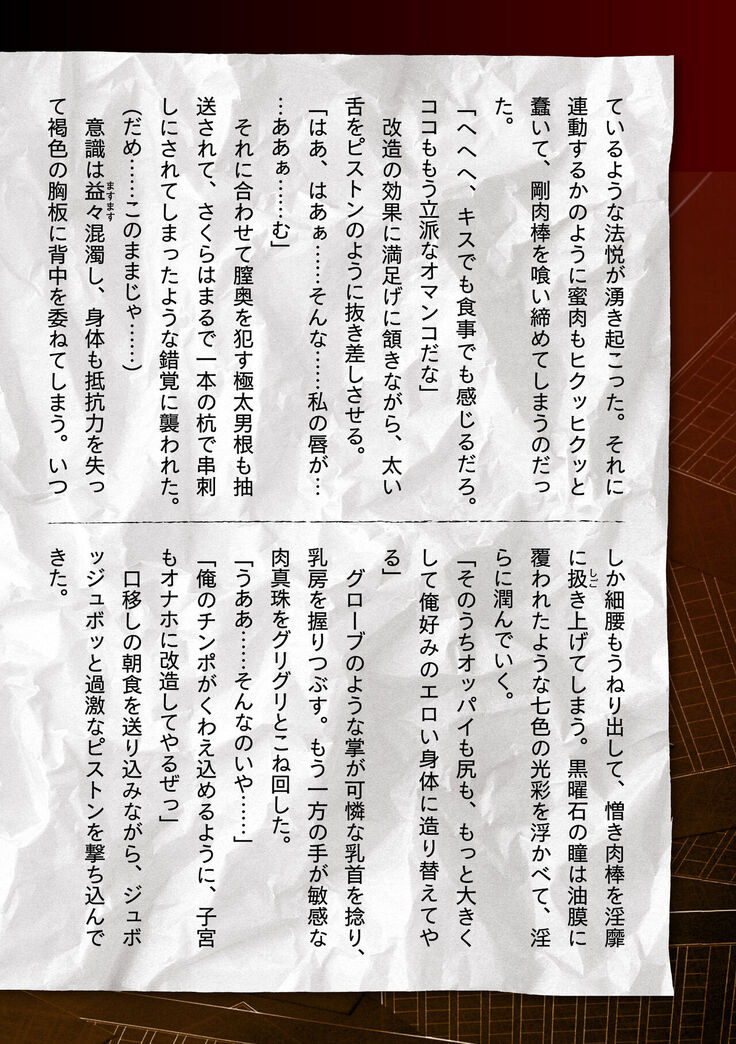 ているような法悦が湧き起こった。それに
連動するかのように蜜肉もヒクッヒクッと
蠢いて、剛肉棒を喰い締めてしまうのだっ
た。
「へへへ、キスでも食事でも感じるだろ。
ココももう立派なオマンコだな」
　改造の効果に満足げに頷きながら、太い
舌をピストンのように抜き差しさせる。
「はあ、はあぁ……そんな……私の唇が…
…あぁぁ……む」
　それに合わせて膣奥を犯す極太男根も抽
送されて、さくらはまるで一本の杭で串刺
しにされてしまったような錯覚に襲われた。
（だめ……このままじゃ……）
　意識は益々ますます混濁し、身体も抵抗力を失っ
て褐色の胸板に背中を委ねてしまう。いつ
しか細腰もうねり出して、憎き肉棒を淫靡
に扱しごき上げてしまう。黒曜石の瞳は油膜に
覆われたような七色の光彩を浮かべて、淫
らに潤んでいく。
「そのうちオッパイも尻も、もっと大きく
して俺好みのエロい身体に造り替えてや
る」
　グローブのような掌が可憐な乳首を捻り、
乳房を握りつぶす。もう一方の手が敏感な
肉真珠をグリグリとこね回した。
「うああ……そんなのいや……」
「俺のチンポがくわえ込めるように、子宮
もオナホに改造してやるぜっ」
　口移しの朝食を送り込みながら、ジュボ
ッジュボッと過激なピストンを撃ち込んで
きた。